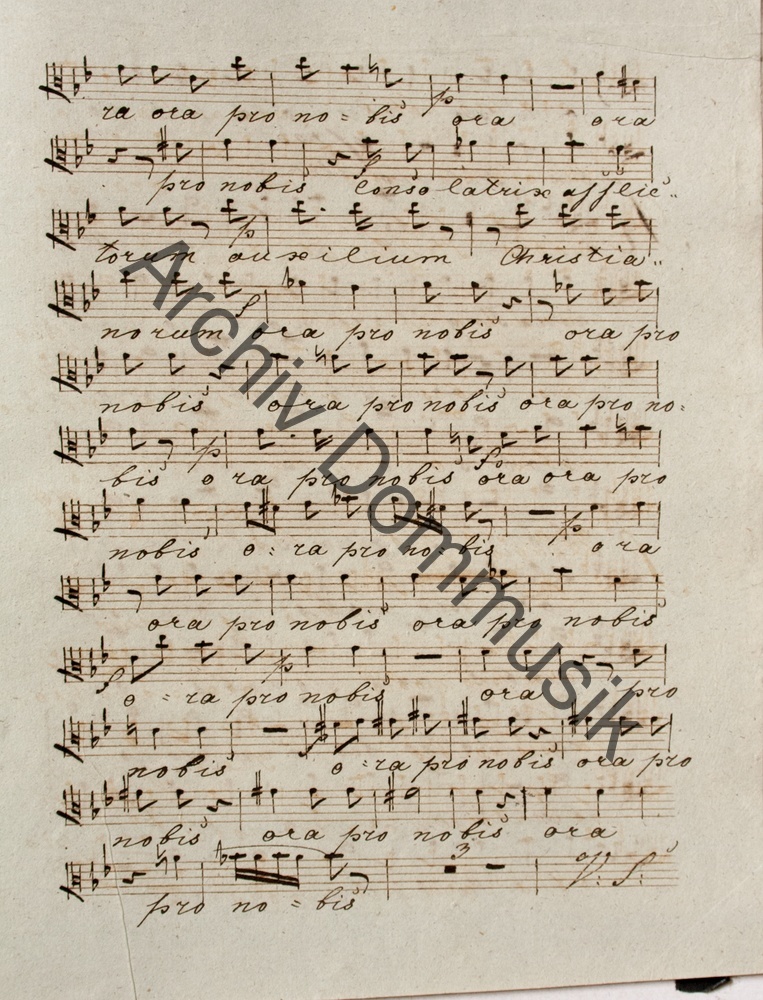 ra ora pro no = bis p ora ora
pro nobis f Conso latrix afflic..
torum p auxilium Christia..
norum f ora pro nobis ora pro
nobis ora pro nobis ora pro no=
bis p ora pro nobis f ora ora pro
nobis o : ra pro no = bis p ora
ora pro nobis ora pro nobis
f o = ra pro p nobis ora pro
nobis o = ra pro nobis ora pro
nobis ora pro nobis ora
pro no = bis 3 V: S:
Archiv Dommusik